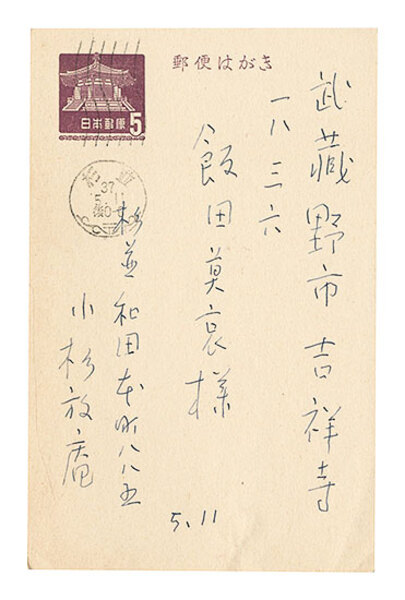 郵便はがき
日本郵便
5
武蔵野市吉祥寺
一八三六
飯田莫哀様
杉並
37
5.11
杉並和田本町八八五
小杉放庵
5.11